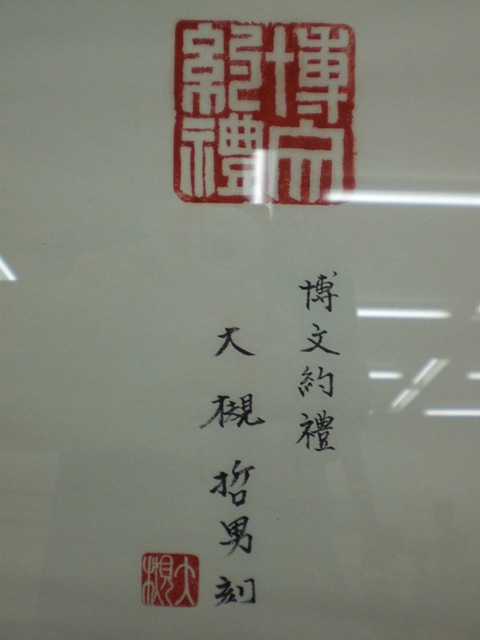 博文
約禮
博文約禮
大槻哲男刻
大槻